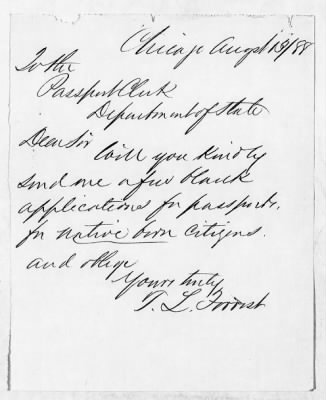 Chicago Augst 18/88
To the
Passport Clerk
Department of State
Dear Sir
Will you kindly
send me a few blank
applications for passports.
for native born citizens.
and oblige
Yours truly
T. L. Forrest